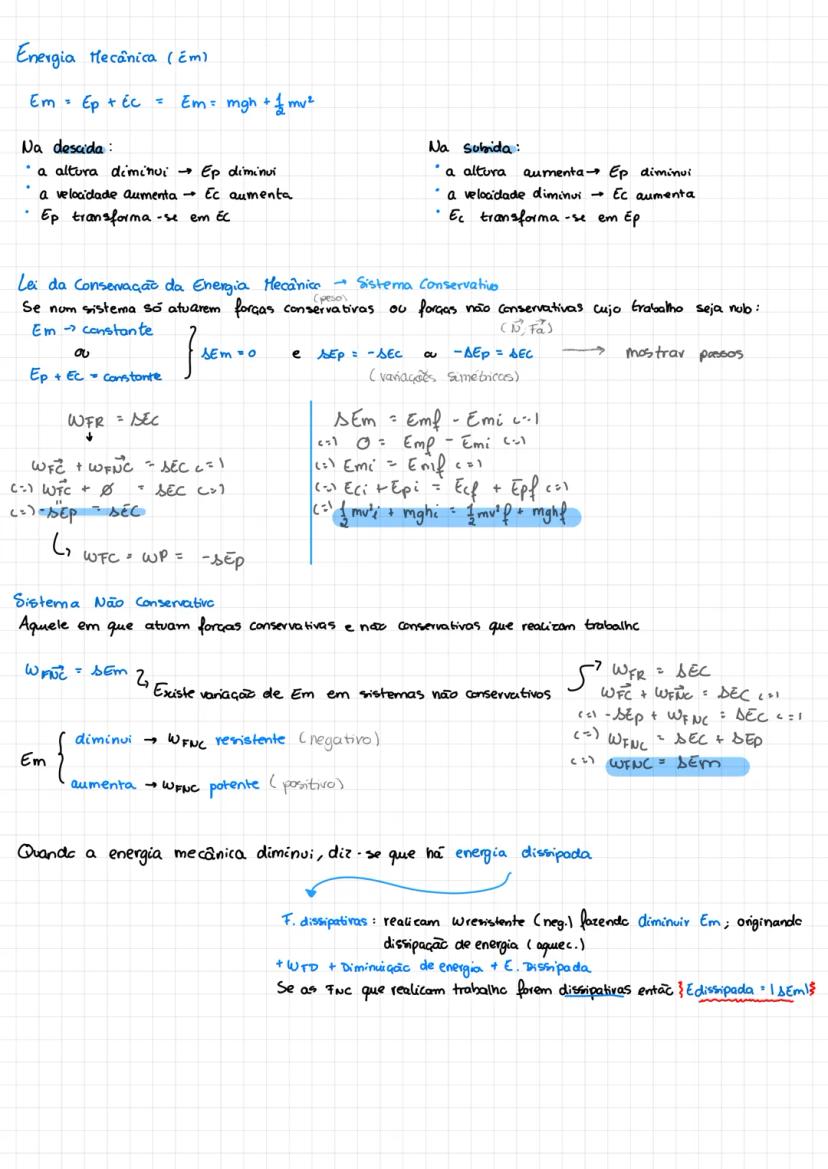 Energia Mecânica (Em)
Em = Ep + Ec = Em = mgh + ½ mv²
Na descida:
• a altura diminui → Ep diminui
• a velocidade aumenta → Ec aumenta
• Ep transforma-se em Ec
Na subida:
• a altura aumenta → Ep diminui
• a velocidade diminui → Ec aumenta
• Ec transforma-se em Ep
Lei da Conservação da Energia Mecânica → Sistema Conservativo
(peso)
Se num sistema só atuarem forças conservativas ou forças não conservativas cujo trabalho seja nulo:
(N⃗, F⃗a)
Em → constante
ou
Ep + Ec = constante
} ΔEm = 0 e ΔEp = -ΔEc ou -ΔEp = ΔEc → mostrar passos
(variações simétricas)
WFR = ΔEC
↓
WF⃗C + WF⃗NC = ΔEC (=)
(=) WF⃗C + 0 = ΔEC (=)
(=) -ΔEp = ΔEC
↳ WFC = WP = -ΔEp
ΔEm = Emf - Emi (=)
(=) 0 = Emf - Emi (=)
(=) Emi = Emf (=)
(=) Eci + Epi = Ecf + Epf (=)
(=) ½ mv²i + mghi = ½ mv²f + mghf
Sistema Não Conservativo
Aquele em que atuam forças conservativas e não conservativas que realizam trabalho
WF⃗NC = ΔEm
↳ Existe variação de Em em sistemas não conservativos
WFR = ΔEC
WF⃗C + WF⃗NC = ΔEC (=)
(=) -ΔEp + WFNC = ΔEC (=)
(=) WFNC = ΔEC + ΔEp
(=) WFNC = ΔEm
Em {
diminui → WFNC resistente (negativo)
aumenta → WFNC potente (positivo)
Quando a energia mecânica diminui, diz-se que há energia dissipada
F. dissipativas: realizam Wresistente (neg.) fazendo diminuir Em; originando
dissipação de energia (aquec.)
+ WFD + Diminuição de energia + E. Dissipada
Se as FNC que realizam trabalho forem dissipativas então {Edissipada = |ΔEm|}